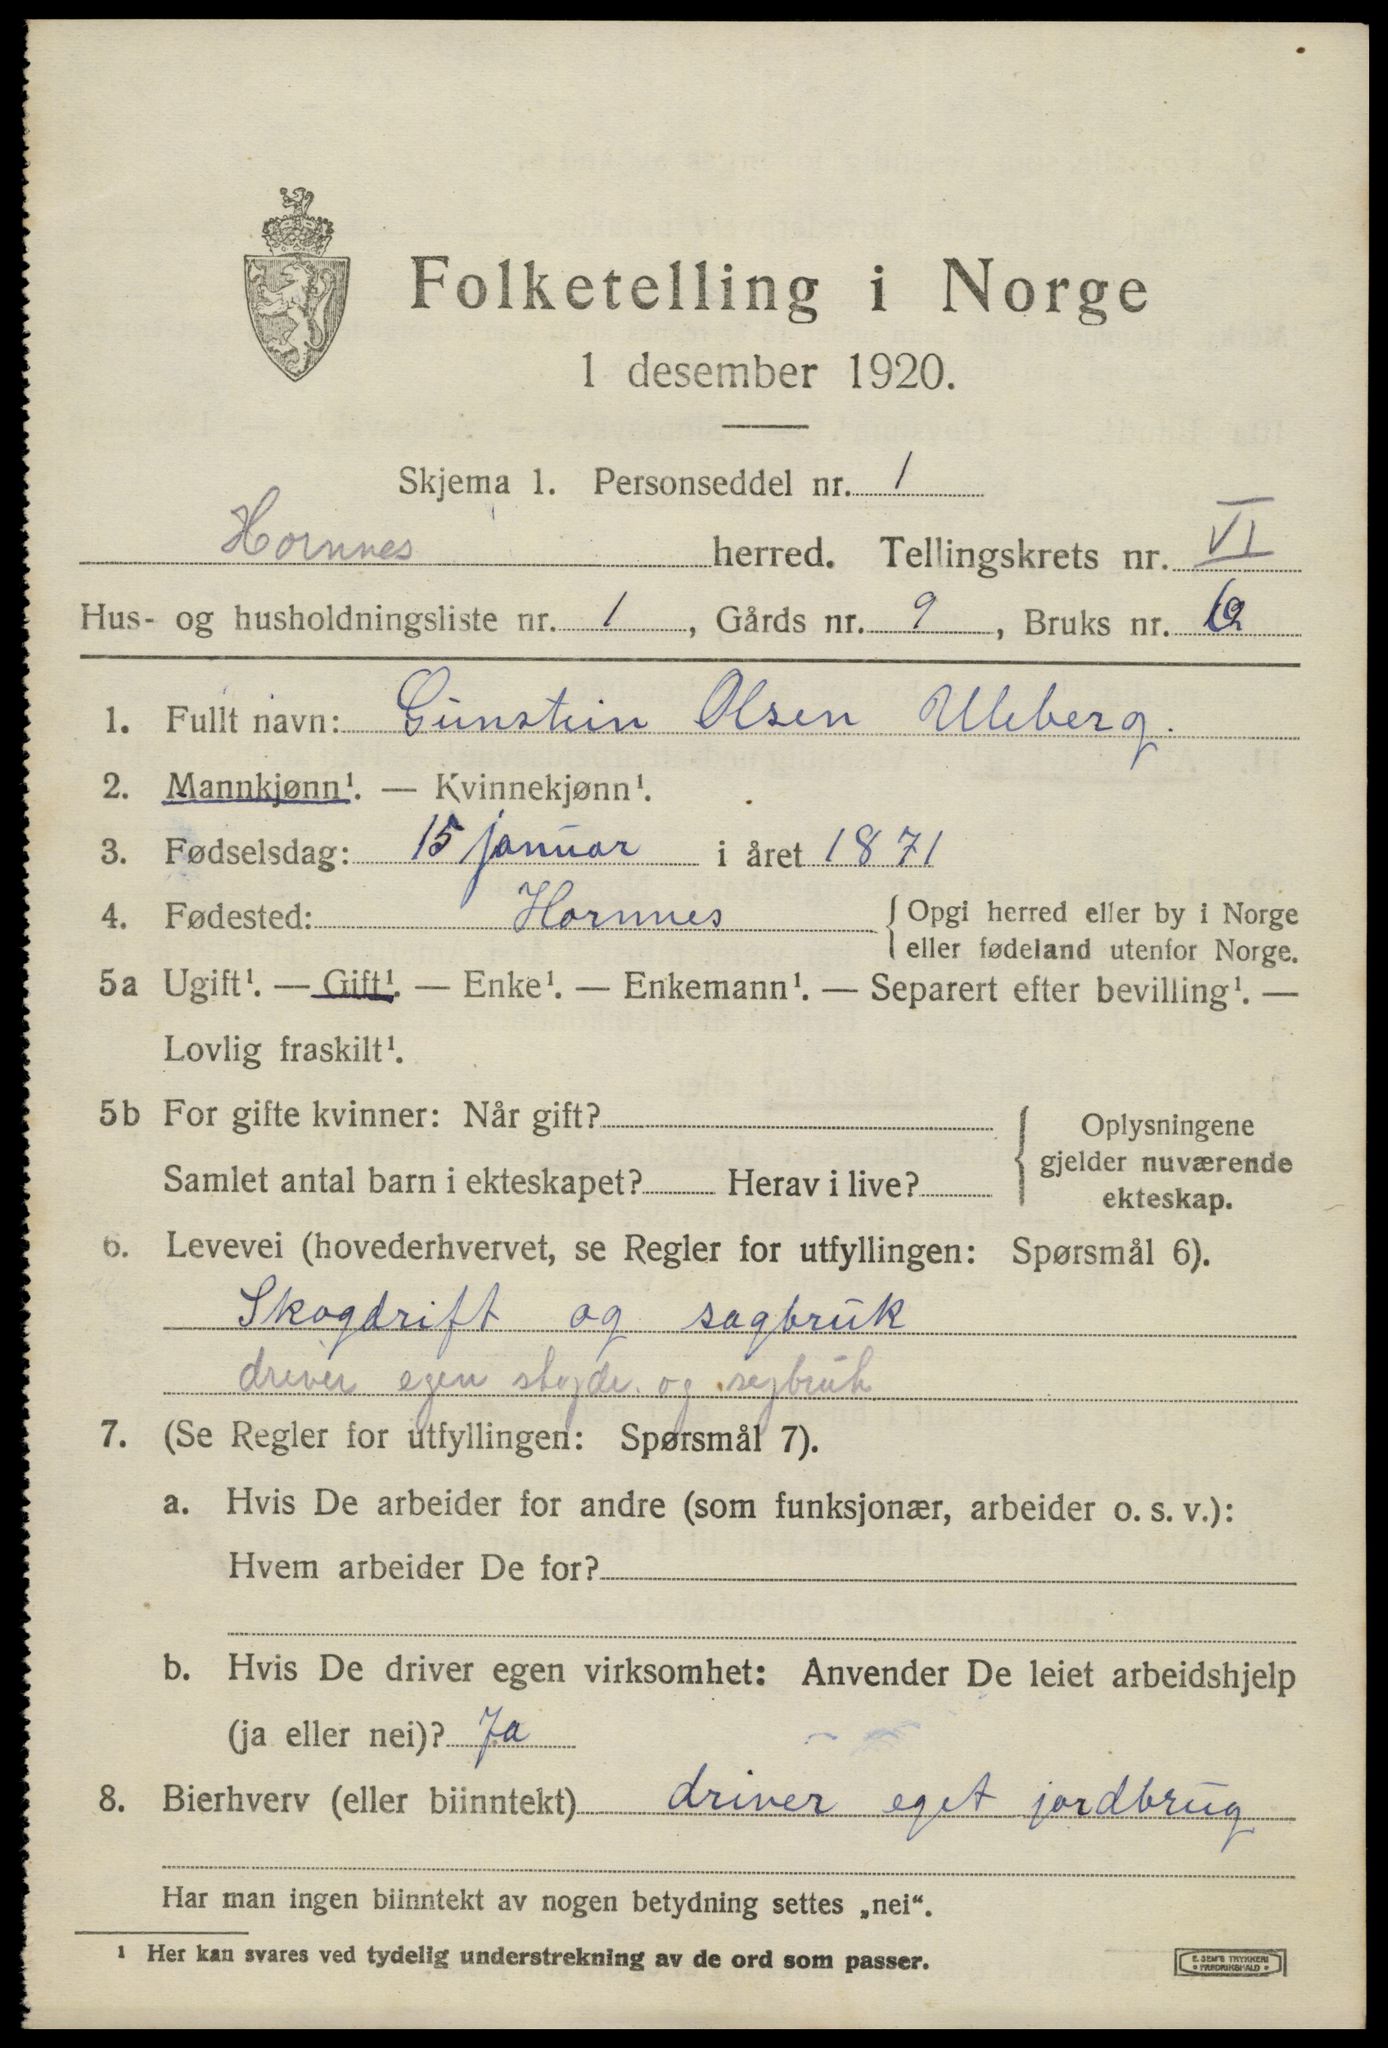 Folketelling i Norge
1 desember 1920.
Skjema 1. Personseddel nr. 1
Hornnes herred. Tellingskrets nr. VI
Hus- og husholdningsliste nr. 1, Gårds nr. 9, Bruks nr.
1. Fullt navn: Gunstein Olsen Uleberg.
2. Mannkjønn¹. — Kvinnekjønn¹.
3. Fødselsdag: 15 januar i året 1871
4. Fødested: Hornnes { Opgi herred eller by i Norge
eller fødeland utenfor Norge.
5a Ugift¹. — Gift¹. — Enke¹. — Enkemann¹. — Separert efter bevilling¹. —
Lovlig fraskilt¹.
5b For gifte kvinner: Når gift?
Samlet antal barn i ekteskapet? Herav i live?
{ Oplysningene
gjelder nuværende
ekteskap.
6. Levevei (hovederhvervet, se Regler for utfyllingen: Spørsmål 6).
Skogdrift og sagbruk
driver egen og sagbruk
7. (Se Regler for utfyllingen: Spørsmål 7).
a. Hvis De arbeider for andre (som funksjonær, arbeider o. s. v.):
Hvem arbeider De for?
b. Hvis De driver egen virksomhet: Anvender De leiet arbeidshjelp
(ja eller nei)? Ja
8. Bierhverv (eller biinntekt) driver eget jordbrug
Har man ingen biinntekt av nogen betydning settes „nei“.
¹ Her kan svares ved tydelig understrekning av de ord som passer.
E. SEM'S TRYKKERI
FREDRIKSHALD